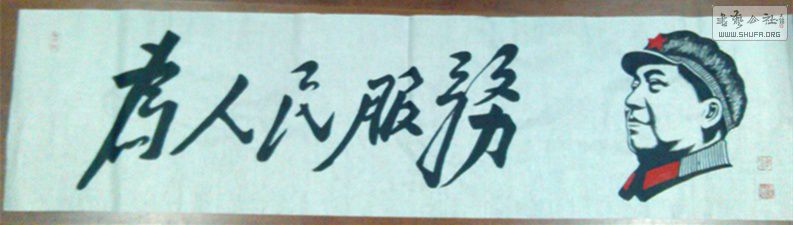 為人民服務
书艺公社
WWW.SHUFA.ORG